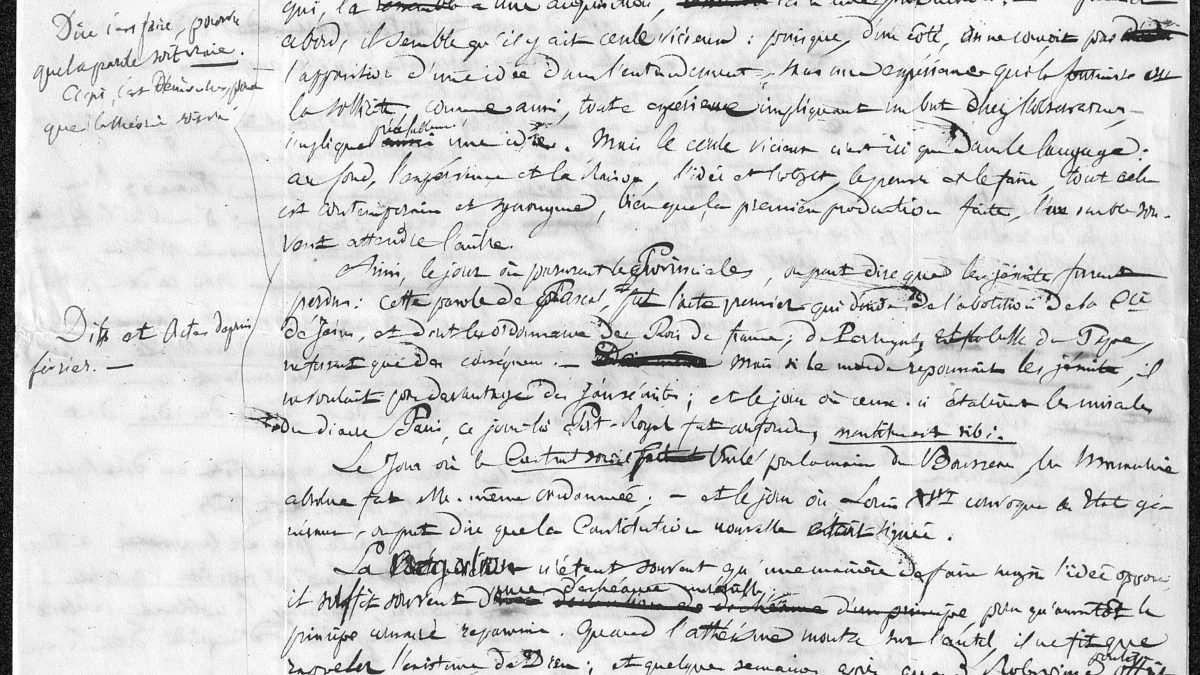 Dire c'est faire, pourvu
que la parole soit vraie.
que la théorie soit
Dits et Actes depuis
février. —
qui, la a une acquisition,
abord, il semble qu'il y ait cercle vicieux : puisque, d'un côté, on ne conçoit pas
l'apparition d'une idée dans l'entendement, sans une expérience qui la fournisse et
la sollicite, comme aussi, toute expérience impliquant un but chez l'observateur,
implique une idée. Mais le cercle vicieux n'est ici que dans le langage :
au fond, l'expérience et la Raison, l'idée et l'objet, le penser et le faire, tout cela
est contemporain et synonyme, bien que, la première production faite, l'un semble sou-
vent attendre l'autre.
Ainsi, le jour où parurent les Provinciales, on peut dire que les jésuites furent
perdus : cette parole de Pascal, fut l'acte premier qui de l'abolition de la Cie
de Jésus, et dont les ordonnances des Rois de france, de Portugal, et la bulle du Pape,
ne furent que des conséquences. — Mais si le monde repoussait les jésuites, il
ne voulait pas davantage des Jansénistes ; et le jour où ceux-ci établirent les miracles
du diacre Pâris, ce jour-là Port-Royal fut confondu, mentita est sibi.
Le Jour où le Contrat social fut par la main du Bourreau, la Monarchie
absolue fut elle-même condamnée ; — et le jour où Louis XVI convoqua les Etats gé-
néraux, on peut dire que la Constitution nouvelle était signée.
La Négation n'étant souvent qu'une manière de faire surgir l'idée opposée
il suffit souvent d'une déchéance d'un principe, pour qu'aussitôt le
principe contraire reparaisse. Quand l'athéisme monta sur l'autel, il ne fit que
rappeler l'existence de Dieu ; et quelques semaines après, quand Robespierre